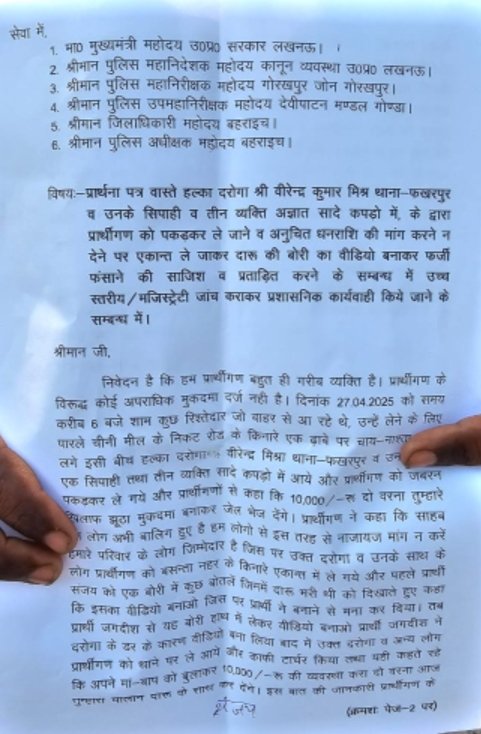 सेवा में,
1. मा0 मुख्यमंत्री महोदय उ0प्र0 सरकार लखनऊ।
2. श्रीमान पुलिस महानिदेशक महोदय कानून व्यवस्था उ0प्र0 लखनऊ।
3. श्रीमान पुलिस महानिरीक्षक महोदय गोरखपुर जोन गोरखपुर।
4. श्रीमान पुलिस उपमहानिरीक्षक महोदय देवीपाटन मण्डल गोण्डा।
5. श्रीमान जिलाधिकारी महोदय बहराइच।
6. श्रीमान पुलिस अधीक्षक महोदय बहराइच।
विषयः–प्रार्थना पत्र वास्ते हल्का दरोगा श्री वीरेन्द्र कुमार मिश्र थाना–फखरपुर
व उनके सिपाही व तीन व्यक्ति अज्ञात सादे कपड़ो में, के द्वारा
प्रार्थीगण को पकड़कर ले जाने व अनुचित धनराशि की मांग करने न
देने पर एकान्त ले जाकर दारू की बोरी का वीडियो बनाकर फर्जी
फंसाने की साजिश व प्रताड़ित करने के सम्बन्ध में उच्च
स्तरीय/मजिस्ट्रेटी जांच कराकर प्रशासनिक कार्यवाही किये जाने के
सम्बन्ध में।
श्रीमान जी,
निवेदन है कि हम प्रार्थीगण बहुत ही गरीब व्यक्ति है। प्रार्थीगण के
विरूद्ध कोई अपराधिक मुकदमा दर्ज नही है। दिनांक 27.04.2025 को समय
करीब 6 बजे शाम कुछ रिश्तेदार जो बाहर से आ रहे थे, उन्हें लेने के लिए
पारले चीनी मील के निकट रोड के किनारे एक ढाबे पर चाय–नाश्ता
लगे इसी बीच हल्का दरोगा वीरेन्द्र मिश्रा थाना–फखरपुर व
एक सिपाही तथा तीन व्यक्ति सादे कपड़ो में आये और प्रार्थीगण को जबरन
पकड़कर ले गये और प्रार्थीगणों से कहा कि 10,000/–रू दो वरना तुम्हारे
खिलाफ झूठा मुकदमा बनाकर जेल भेज देंगे। प्रार्थीगण ने कहा कि साहब
लोग अभी बालिग हुए है हम लोगो से इस तरह से नाजायज मांग न करें
हमारे परिवार के लोग जिम्मेदार है जिस पर उक्त दरोगा व उनके साथ के
लोग प्रार्थीगण को बसन्ता नहर के किनारे एकान्त में ले गये और पहले प्रार्थी
संजय को एक बोरी में कुछ बोतलें जिनमें दारू भरी थी को दिखाते हुए कहा
कि इसका वीडियो बनाओ जिस पर प्रार्थी ने बनाने से मना कर दिया। तब
प्रार्थी जगदीश से यह बोरी हाथ में लेकर वीडियो बनाओ प्रार्थी जगदीश ने
दरोगा के डर के कारण वीडियो बना लिया बाद में उक्त दरोगा व अन्य लोग
प्रार्थीगण को थाने पर ले आये और काफी टार्चर किया तथा यही कहते रहे
कि अपने मा–बाप को बुलाकर 10,000/–रू की व्यवस्था करा दो वरना आज
तुम्हारा चालान दारू के साथ कर देंगे। इस बात की जानकारी प्रार्थीगण के
(क्रमशः पेज–2 पर)